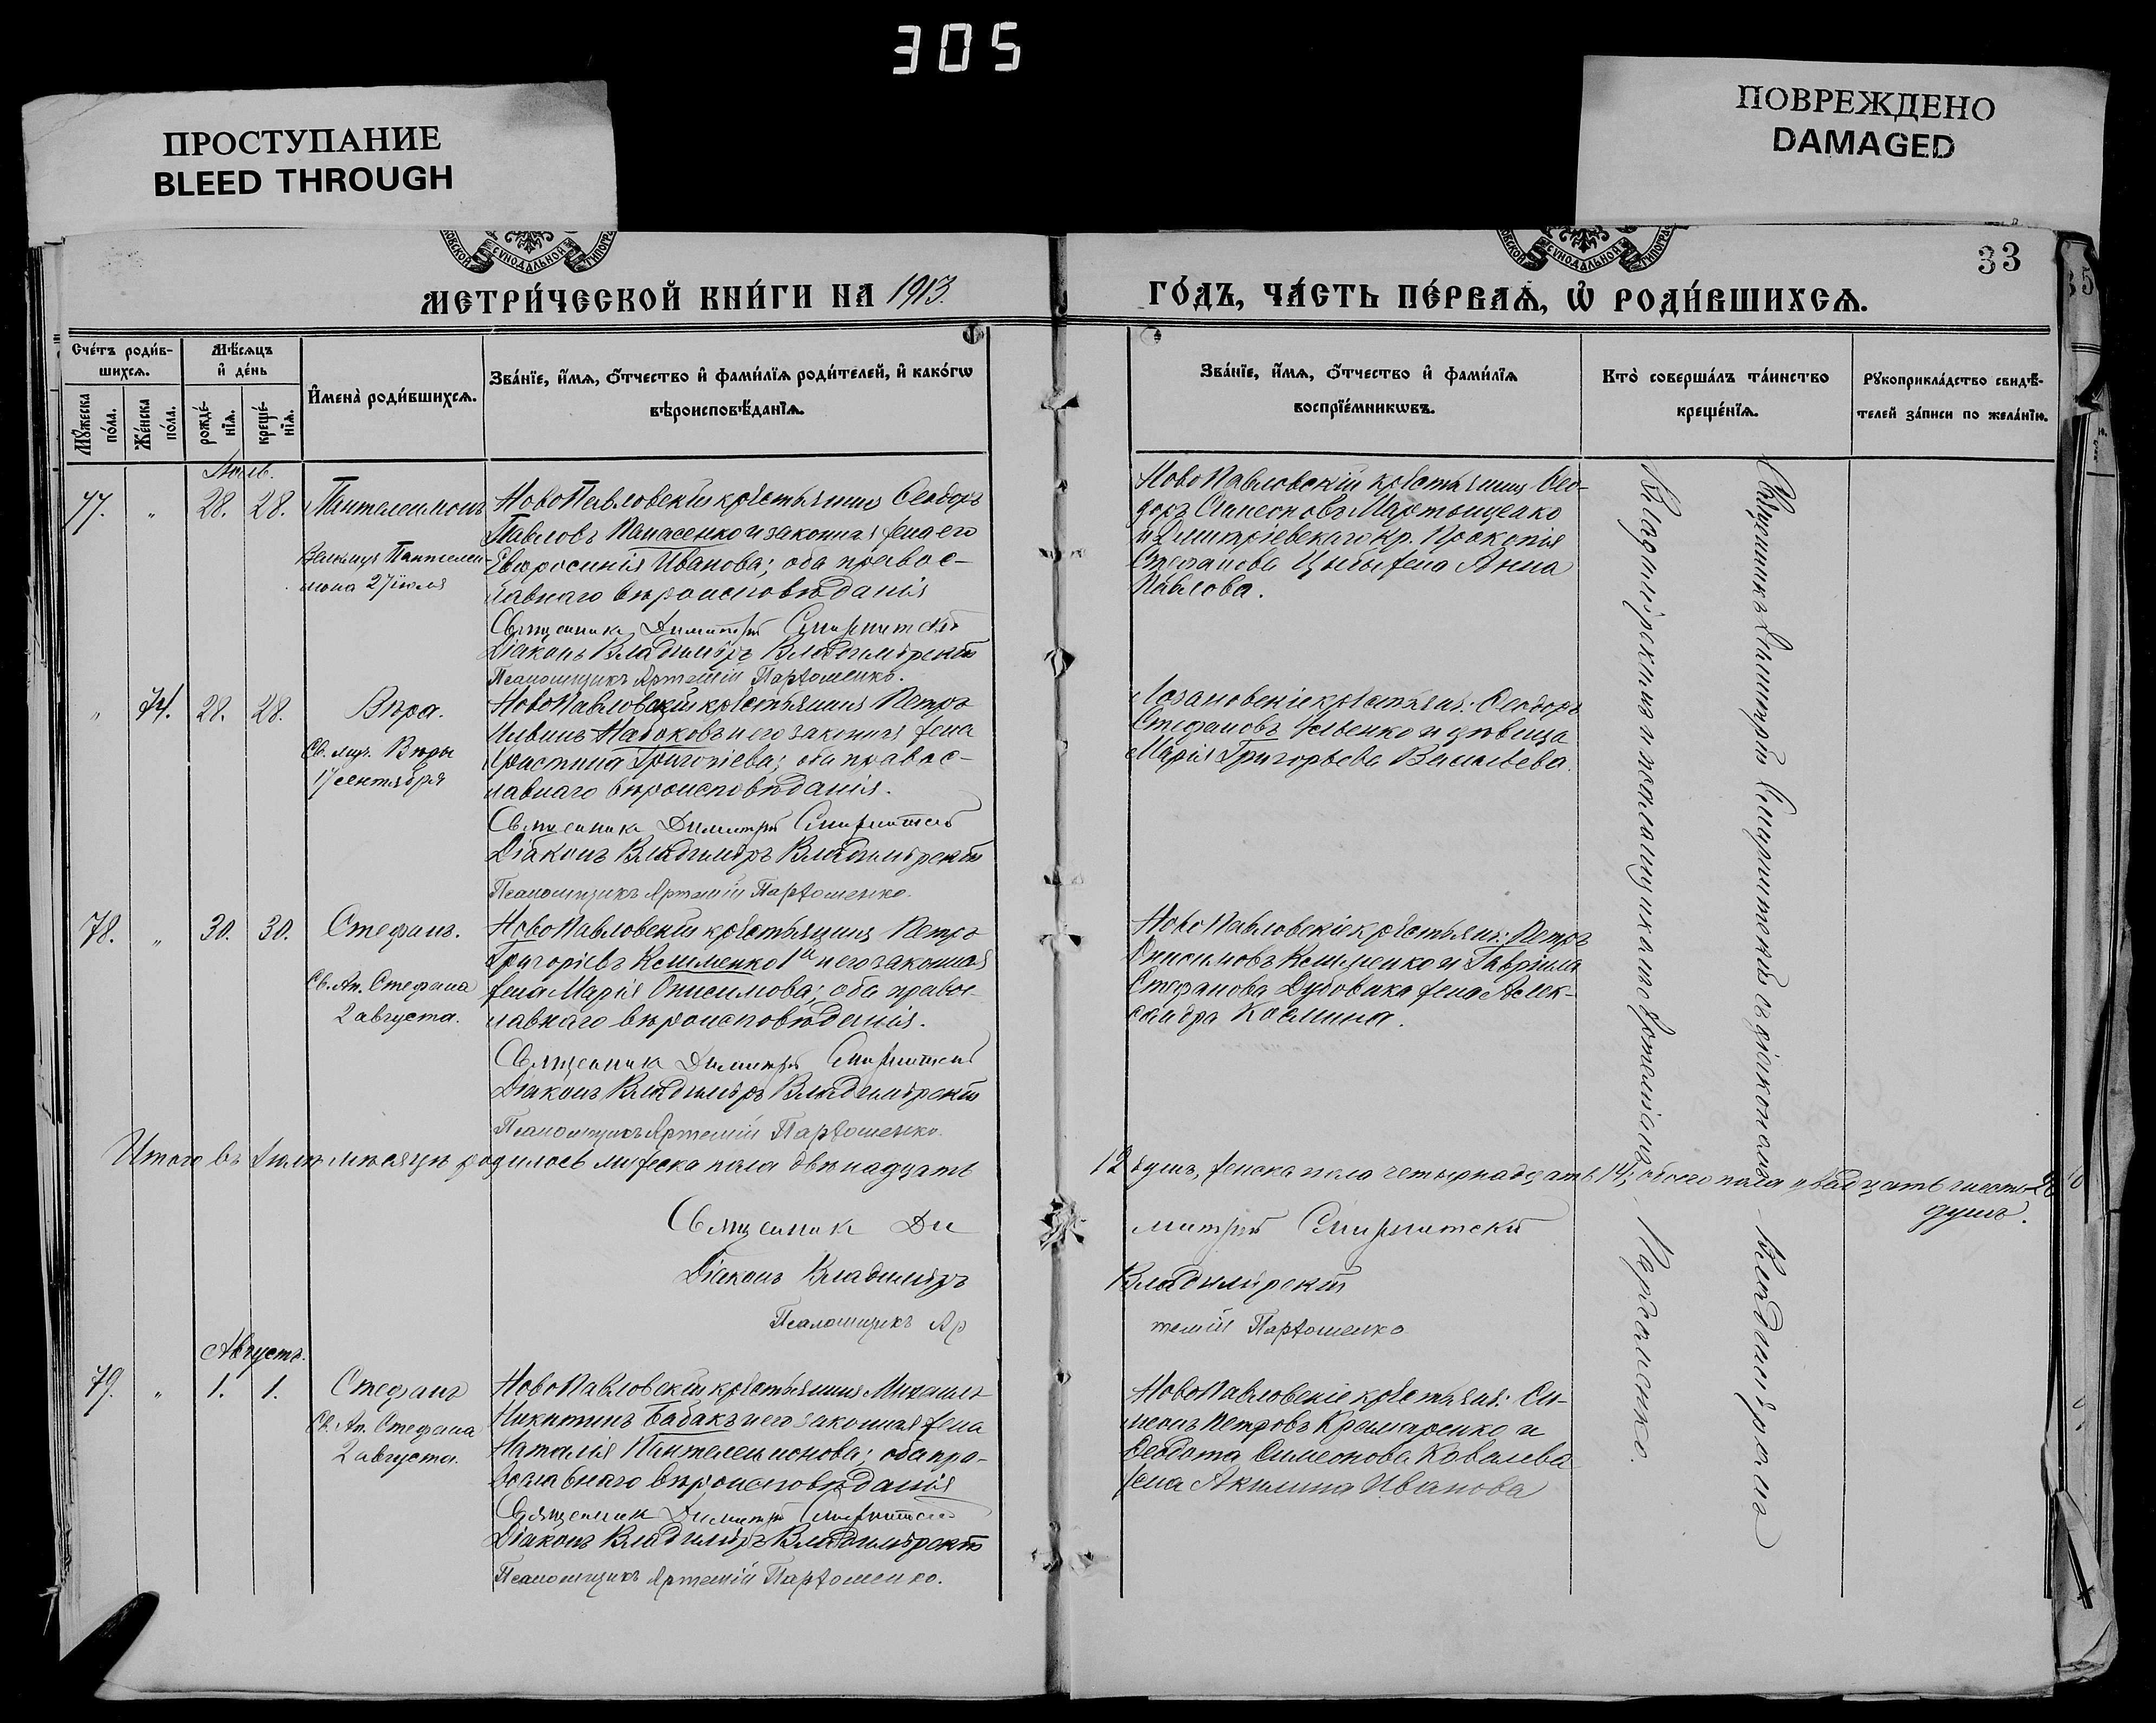 305
ПРОСТУПАНИЕ
BLEED THROUGH
ПОВРЕЖДЕНО
DAMAGED
33
МЕТРИ́ЧЕСКОЙ КНИ́ГИ НА 1913.
ГО́ДЪ, ЧА́СТЬ ПЕ́РВАѦ, Ѡ҆ РОДИ́ВШИХСѦ.
Сче́тъ роди́в-
шихсѧ.
Мѣ́сѧцъ
и҆ де́нь
Мꙋ́жеска
по́ла.
Же́нска
по́ла.
рожде́-
нїѧ.
креще́-
нїѧ.
И҆мена̀ роди́вшихсѧ.
Зва́нїе, и҆́мѧ, ѻ҆́тчество и҆ фами́лїѧ роди́телей, и҆ како́гѡ
вѣроисповѣ́данїѧ.
Зва́нїе, и҆́мѧ, ѻ҆́тчество и҆ фами́лїѧ
воспрїе́мникѡвъ.
Кто̀ соверша́лъ та́инство
креще́нїѧ.
Рꙋкоприкла́дство свидѣ́-
телей за́писи по жела́нїю.
Іюль.
77. „ 28. 28. Пантелеимонъ
Великомуч. Пантелеи-
мона 27 іюля
НовоПавловскій крестьянинъ Ѳеодоръ
Павловъ Панасенко и законная жена его
Евфросинія Иванова; оба правос-
лавнаго вѣроисповѣданія
Священникъ Димитрій
Діаконъ Владиміръ Владимірскій
Псаломщикъ Артемій Пархоменко.
НовоПавловскій крестьянинъ Ѳео-
доръ Симеоновъ Мартыщенко
и Димитріевскаго кр. Прокопія
Стефанова Цыбы жена Анна
Павлова.
„ 74. 28. 28. Вѣра.
Св. муч. Вѣры
17 сентября
НовоПавловскій крестьянинъ Петръ
Набоковъ и его законная жена
Христина Григоріева; оба правос-
лавнаго вѣроисповѣданія.
Священникъ Димитрій
Діаконъ Владиміръ Владимірскій
Псаломщикъ Артемій Пархоменко.
Лозановскіе крестьяне: Ѳеодоръ
Стефановъ и дѣвица
Марія Григорьева Васильева.
78. „ 30. 30. Стефанъ.
Св. Ап. Стефана
2 августа.
НовоПавловскій крестьянинъ Петръ
Григоріевъ Клименко 1й и его законная
жена Марія Онисимова; оба правос-
лавнаго вѣроисповѣданія.
Священникъ Димитрій
Діаконъ Владиміръ Владимірскій
Псаломщикъ Артемій Пархоменко.
НовоПавловскіе крестьяне: Петръ
Онисимовъ и Гавріила
Стефанова Дубовика жена Алек-
сандра Косьмина.
Итого въ Іюлѣ мѣсяцѣ родилось мужеска пола двѣнадцать
12 душъ, женска пола четырнадцать 14, обоего пола двадцать шесть 26
душъ.
Священникъ Ди
митрій
Діаконъ Владиміръ
Владимірскій
Псаломщикъ Ар
темій Пархоменко
Августъ.
79. „ 1. 1. Стефанъ
Св. Ап. Стефана
2 августа.
НовоПавловскій крестьянинъ Михаилъ
Никитинъ Бабакъ и его законная жена
Наталія Пантелеимонова; оба пра-
вославнаго вѣроисповѣданія
Священникъ Димитрій
Діаконъ Владиміръ Владимірскій
Псаломщикъ Артемій Пархоменко.
НовоПавловскіе крестьяне: Си-
меонъ Петровъ Крамаренко и
Ѳеодота Симеонова Ковалева
жена Акилина Иванова
Священникъ Димитрій съ діакономъ Владиміромъ
Владимірскимъ и псаломщикомъ Артеміемъ Пархоменко.